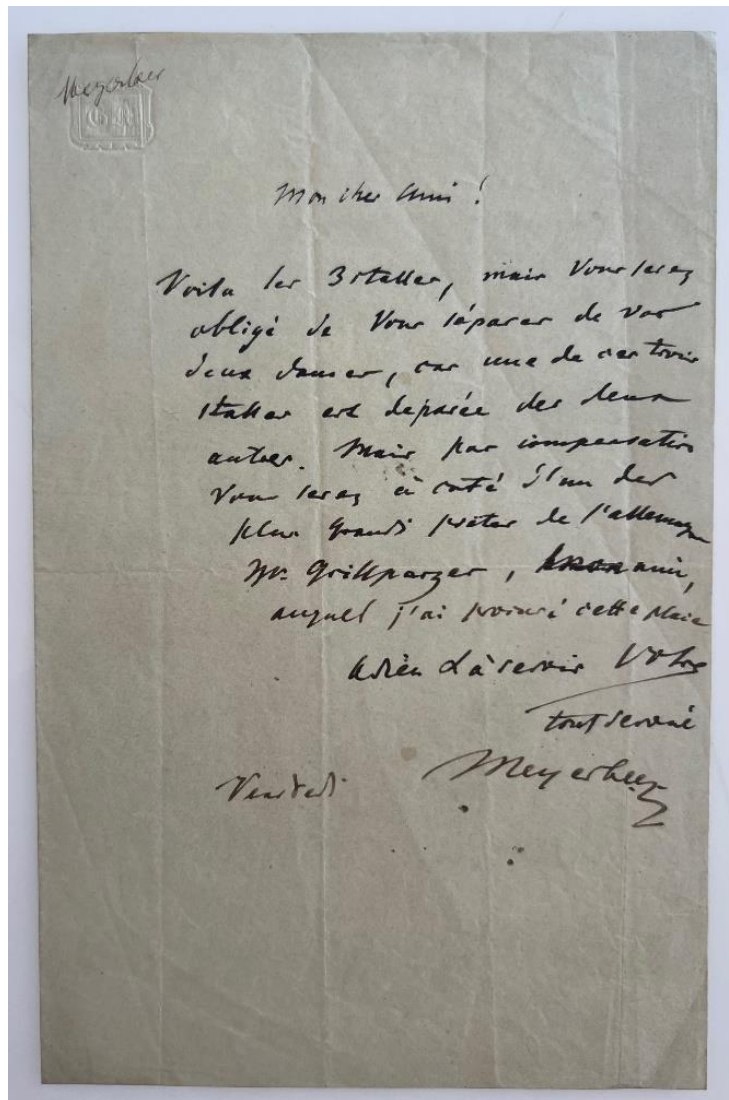 Meyerbeer
Mon cher Ami !
Voila les 3 stalles, mais Vous serez
obligé de Vous séparer de vos
deux dames, car une de ces trois
stalles est separée des deux
autres. Mais par compensation
Vous serez à coté d'un des
plus grands poëtes de l'allemagne
Mr. Grillparzer, ami,
auquel j'ai procuré cette place
Adieu à revoir Votre
tout devoué
Meyerbeer
Vendredi